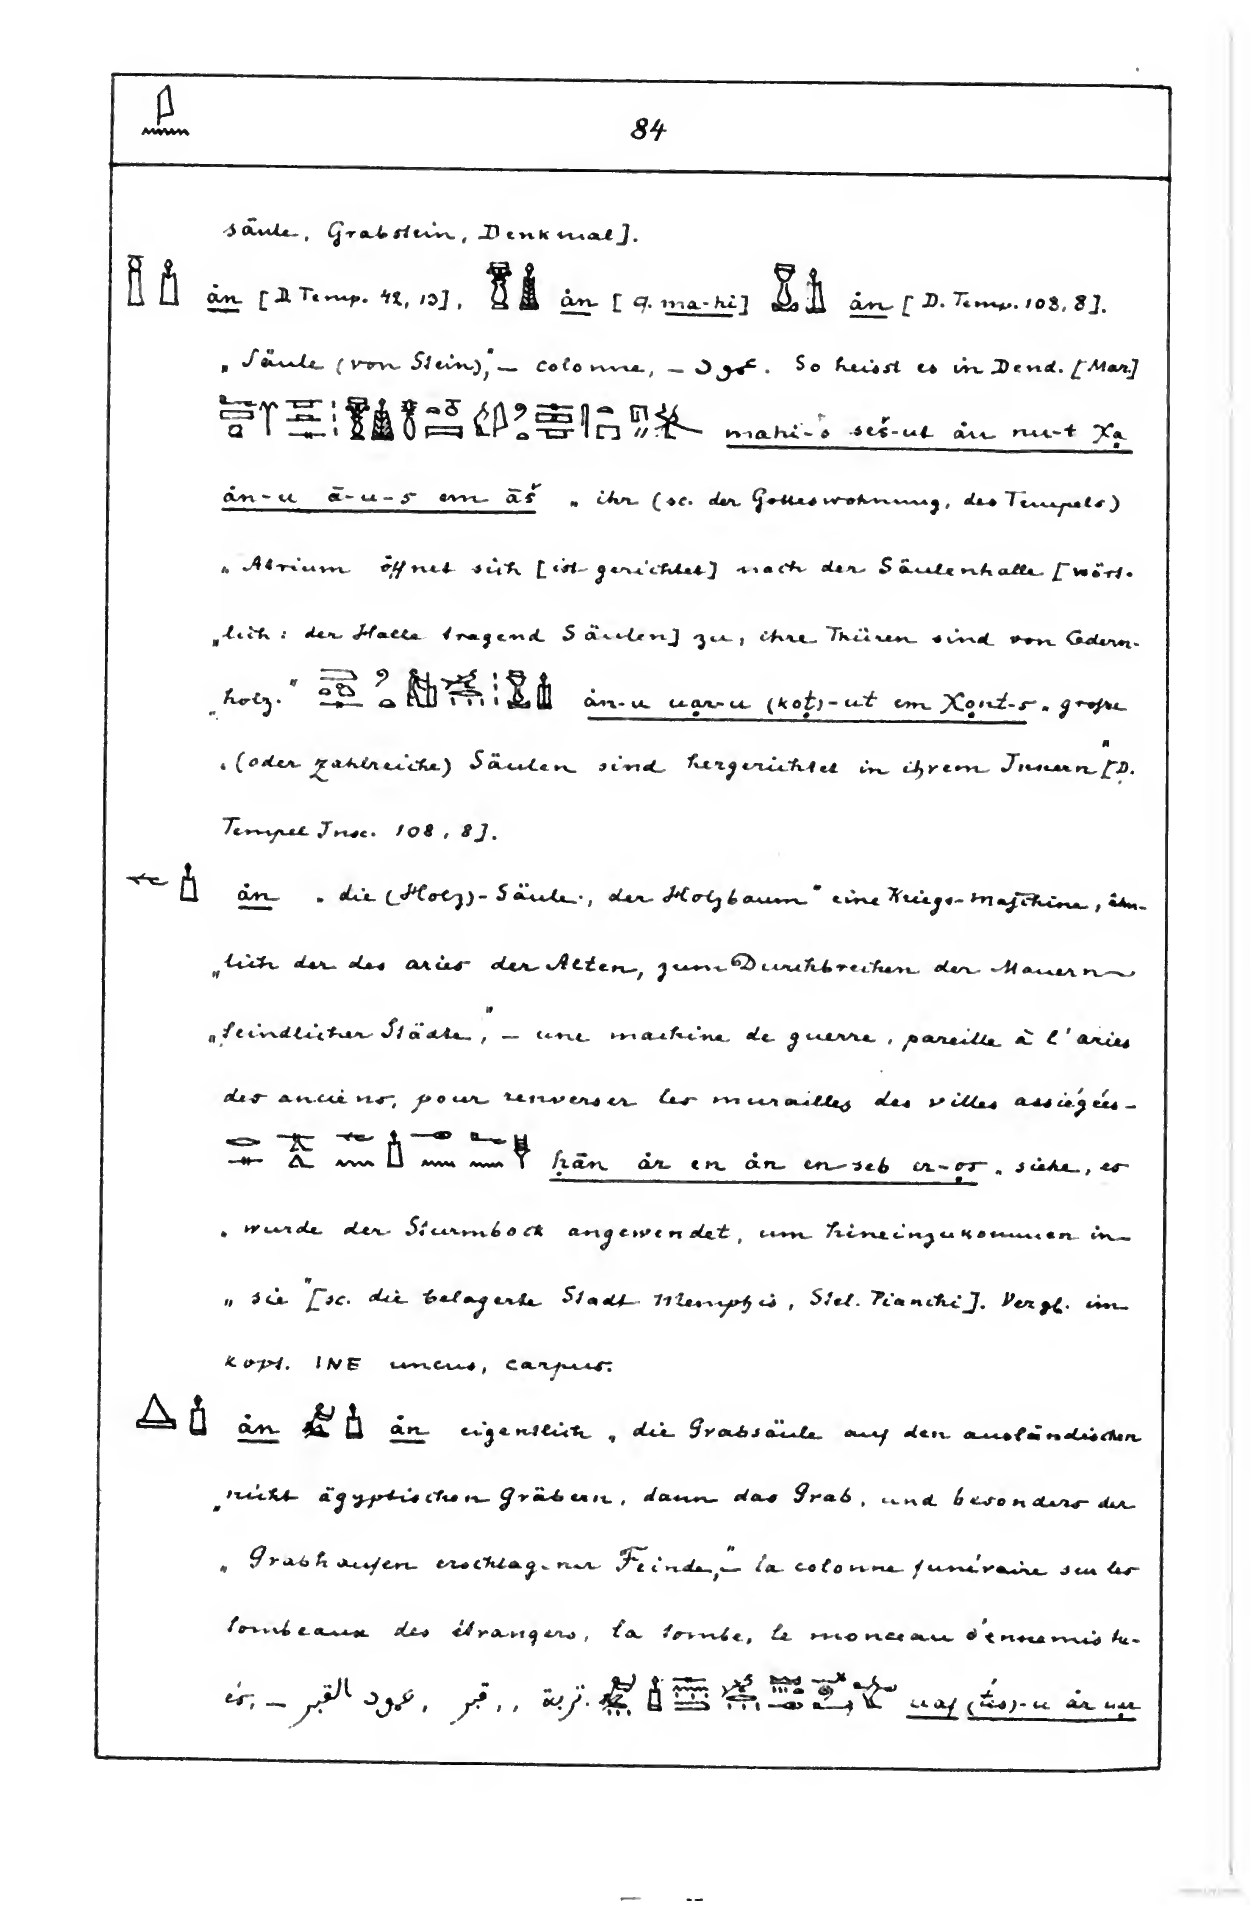 84
säule, Grabstein, Denkmal].
ȧn [D Temp. 42, 13], ȧn [q. ma-hi] ȧn [D. Temp. 108, 8].
„Säule (von Stein)," — colonne, — عمود. So heisst es in Dend. [Mar.]
mahi-s seš-ut ȧu nu-t Xa
ȧn-u ā-u-s em āš „ihr (sc. der Gotteswohnung, des Tempels)
„Atrium öffnet sich [ist gerichtet] nach der Säulenhalle [wört-
„lich: der Halle tragend Säulen] zu, ihre Thüren sind von Cedern-
„holz." ȧn-u uar-u (kot)-ut em Xont-s „große
„(oder zahlreiche) Säulen sind hergerichtet in ihrem Innern" [D.
Tempel Insc. 108, 8].
ȧn „die (Holz)-Säule, der Holzbaum" eine Kriegs-maschine, ähn-
„lich der des aries der Alten, zum Durchbrechen der Mauern
„feindlicher Städte," — une machine de guerre, pareille à l'aries
des anciens, pour renverser les murailles des villes assiégées —
ḥān ȧr en ȧn en seb er-os „siehe, es
„wurde der Sturmbock angewendet, um hineinzukommen in
„sie" [sc. die belagerte Stadt Memphis, Stel. Pianchi]. Vergl. im
kopt. INE uncus, carpus.
ȧn ȧn eigentlich „die Grabsäule auf den ausländischen
„nicht ägyptischen Gräbern, dann das Grab, und besonders der
„Grabhaufen erschlagener Feinde," — la colonne funéraire sur les
tombeaux des étrangers, la tombe, le monceau d'ennemis tu-
és, — عمود القبر, قبر, تربة. uaf (tes)-u ȧr uar